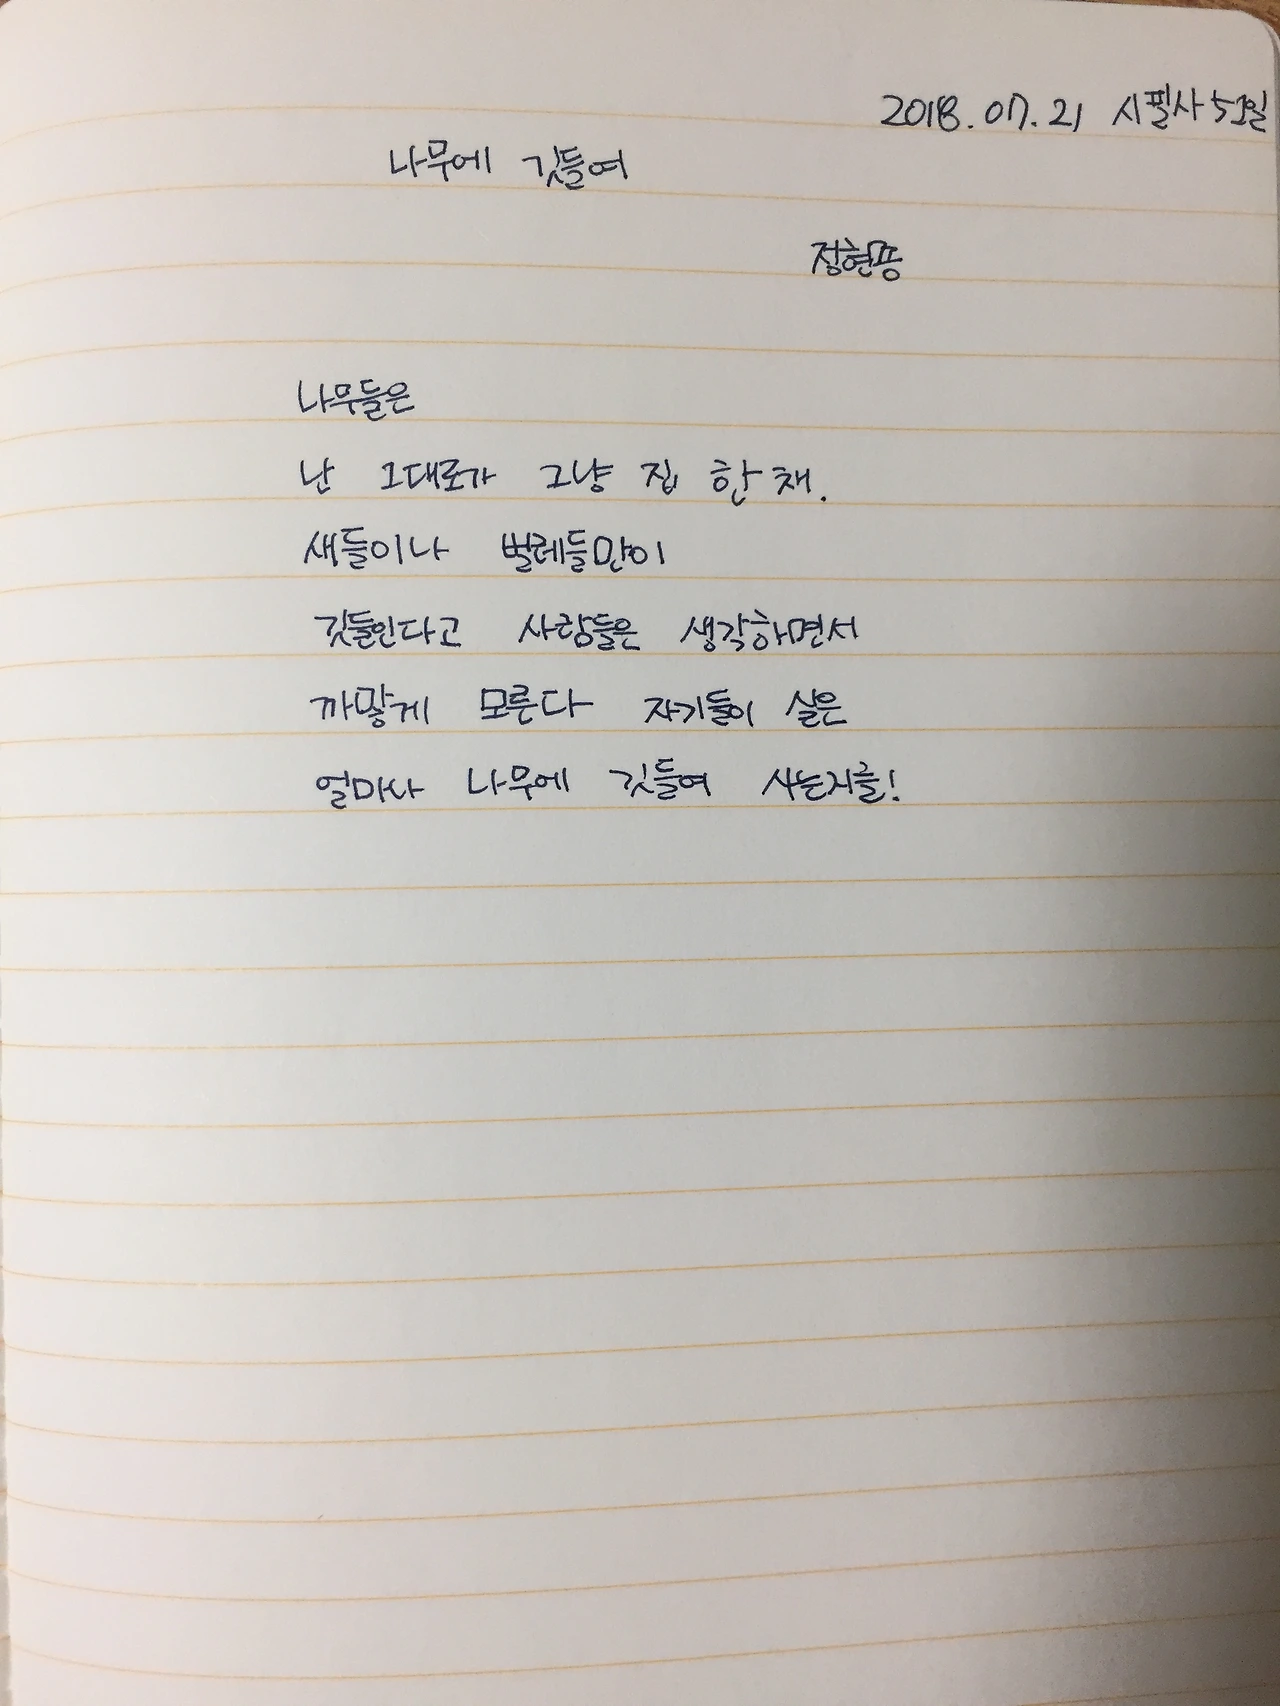 2018. 07. 21 시필사 51일
나무에 깃들여
정현종
나무들은
난 그대로가 그냥 집 한 채.
새들이나 벌레들만이
깃들인다고 사람들은 생각하면서
까맣게 모른다 자기들이 실은
얼마나 나무에 깃들여 사는지를!